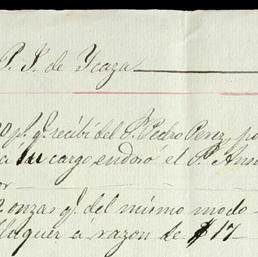 P. J. de Ycaza
0 p.s q.e recibi del S. Pedro Perez, po
á su cargo endosó el S. Ans
or
2 onzas q.e del mismo modo
laquer a razon de $17